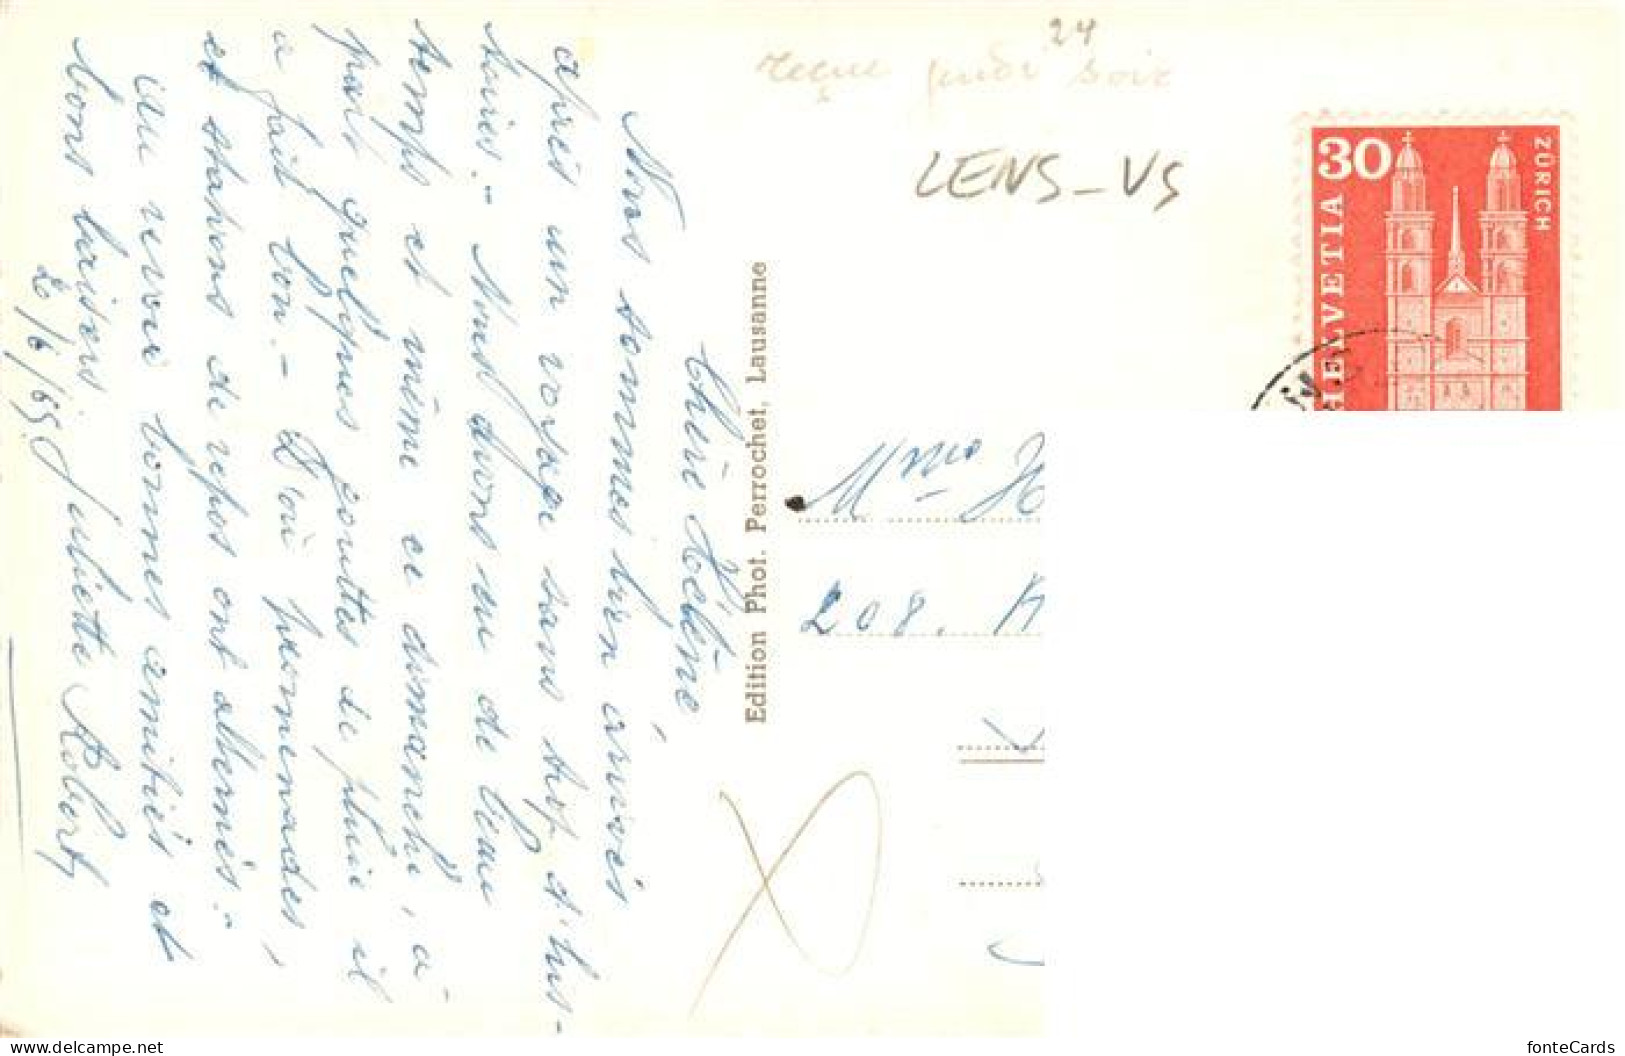 Chère Hélène
Nous sommes bien arrivés
après un voyage sans trop d'his-
toires.- Nous avons eu de beau
temps et même ce dimanche, à
part quelques gouttes de pluie il
a fait bon.- D'où promenades,
et stations de repos ont alternés.-
Au revoir bonnes amitiés et
bons baisers Juliette Robert
2/6/65
Edition Phot. Perrochet, Lausanne
24
reçue jeudi soir
LENS-VS
30
HELVETIA
ZÜRICH
Mme H
208.
www.delcampe.net
fonteCards